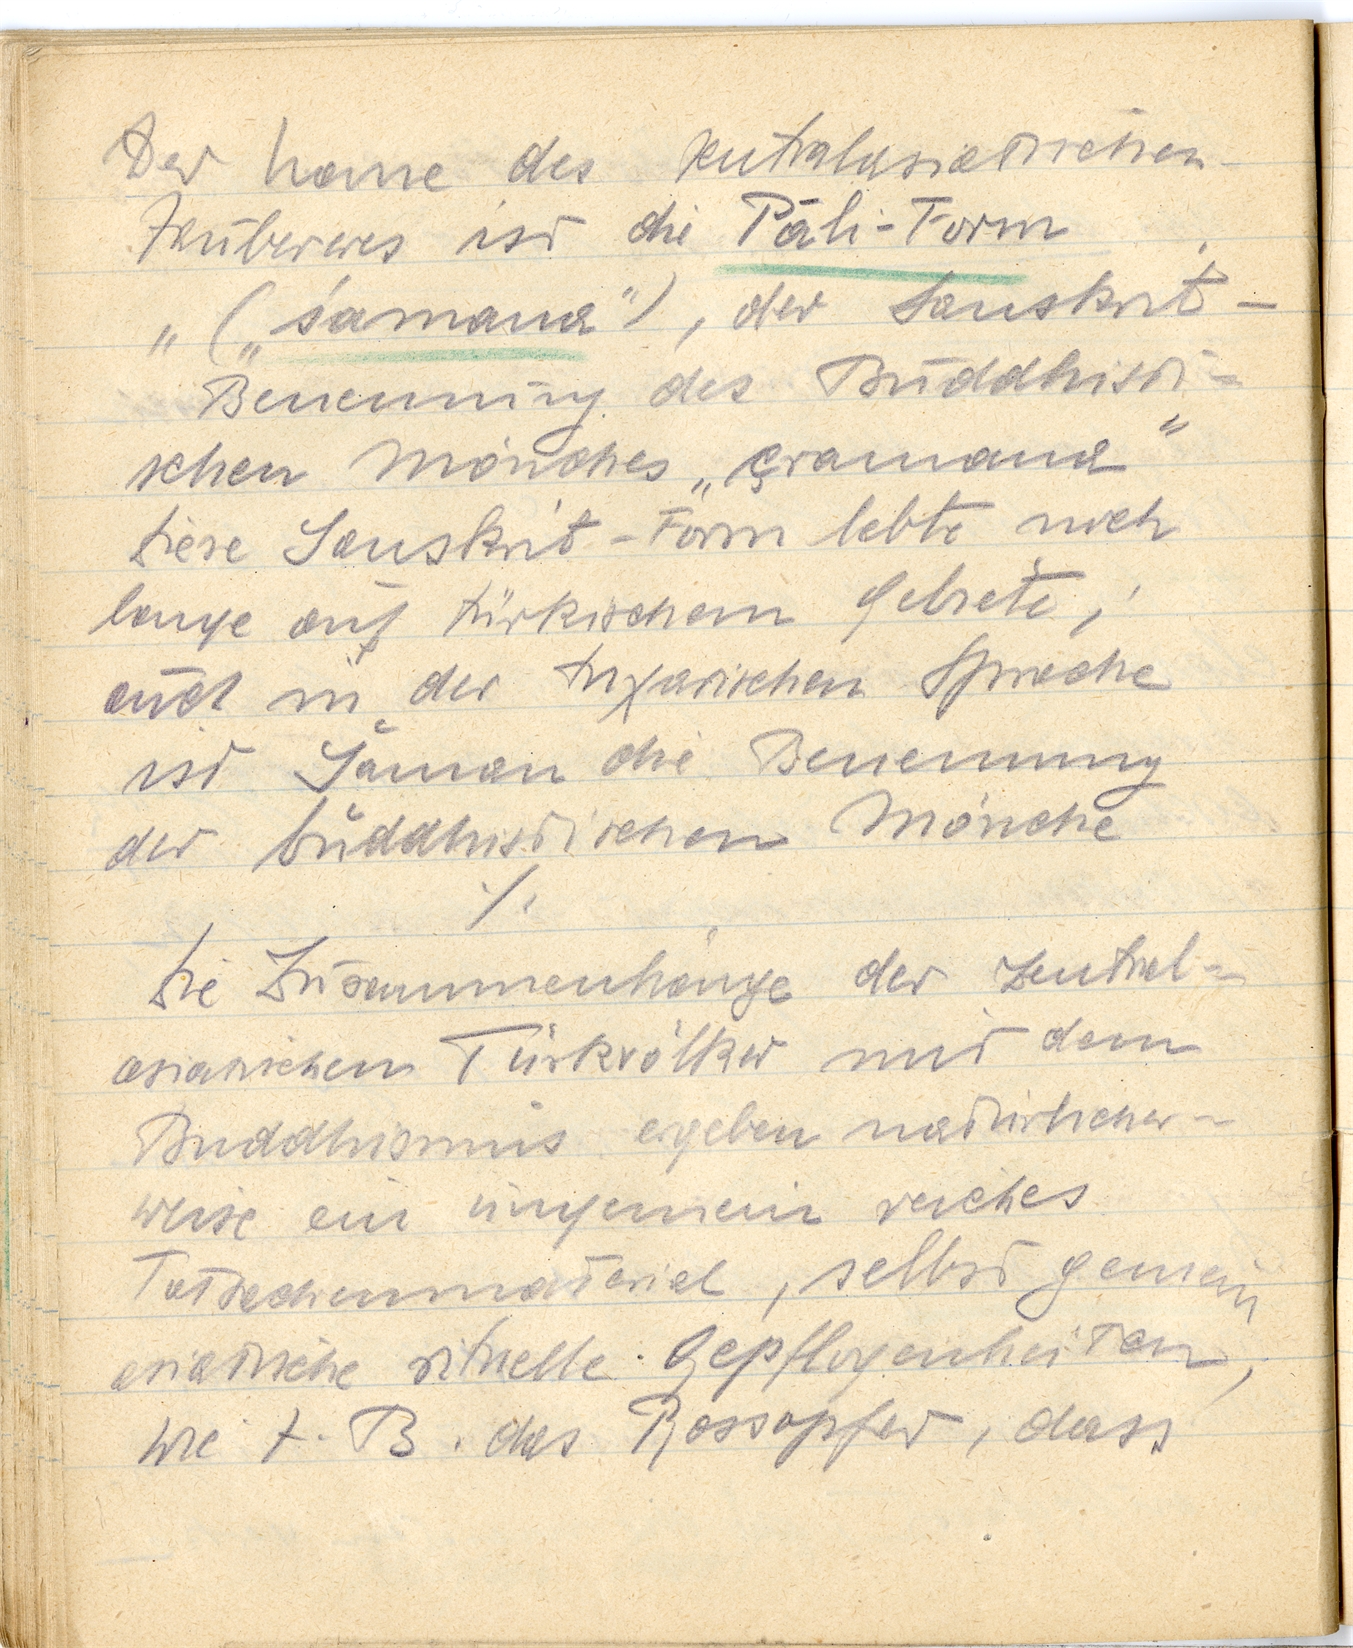 Der Name des zentralasiatischen
Zauberers ist die Pāli-Form
„ („śamana"), der Sanskrit-
Benennung des Buddhisti-
schen Mönches „çramana"
diese Sanskrit-Form lebte noch
lange auf türkischem Gebiete,
auch in der Sprache
ist Šaman die Benennung
der buddhistischen Mönche
./.
Die Zusammenhänge der zentral-
asiatischen Türkvölker mit dem
Buddhismus ergeben natürlicher-
weise ein ungemein reiches
Tatsachenmaterial, selbst gemein
asiatische rituelle Gepflogenheiten,
wie z. B. das Rossopfer, dass